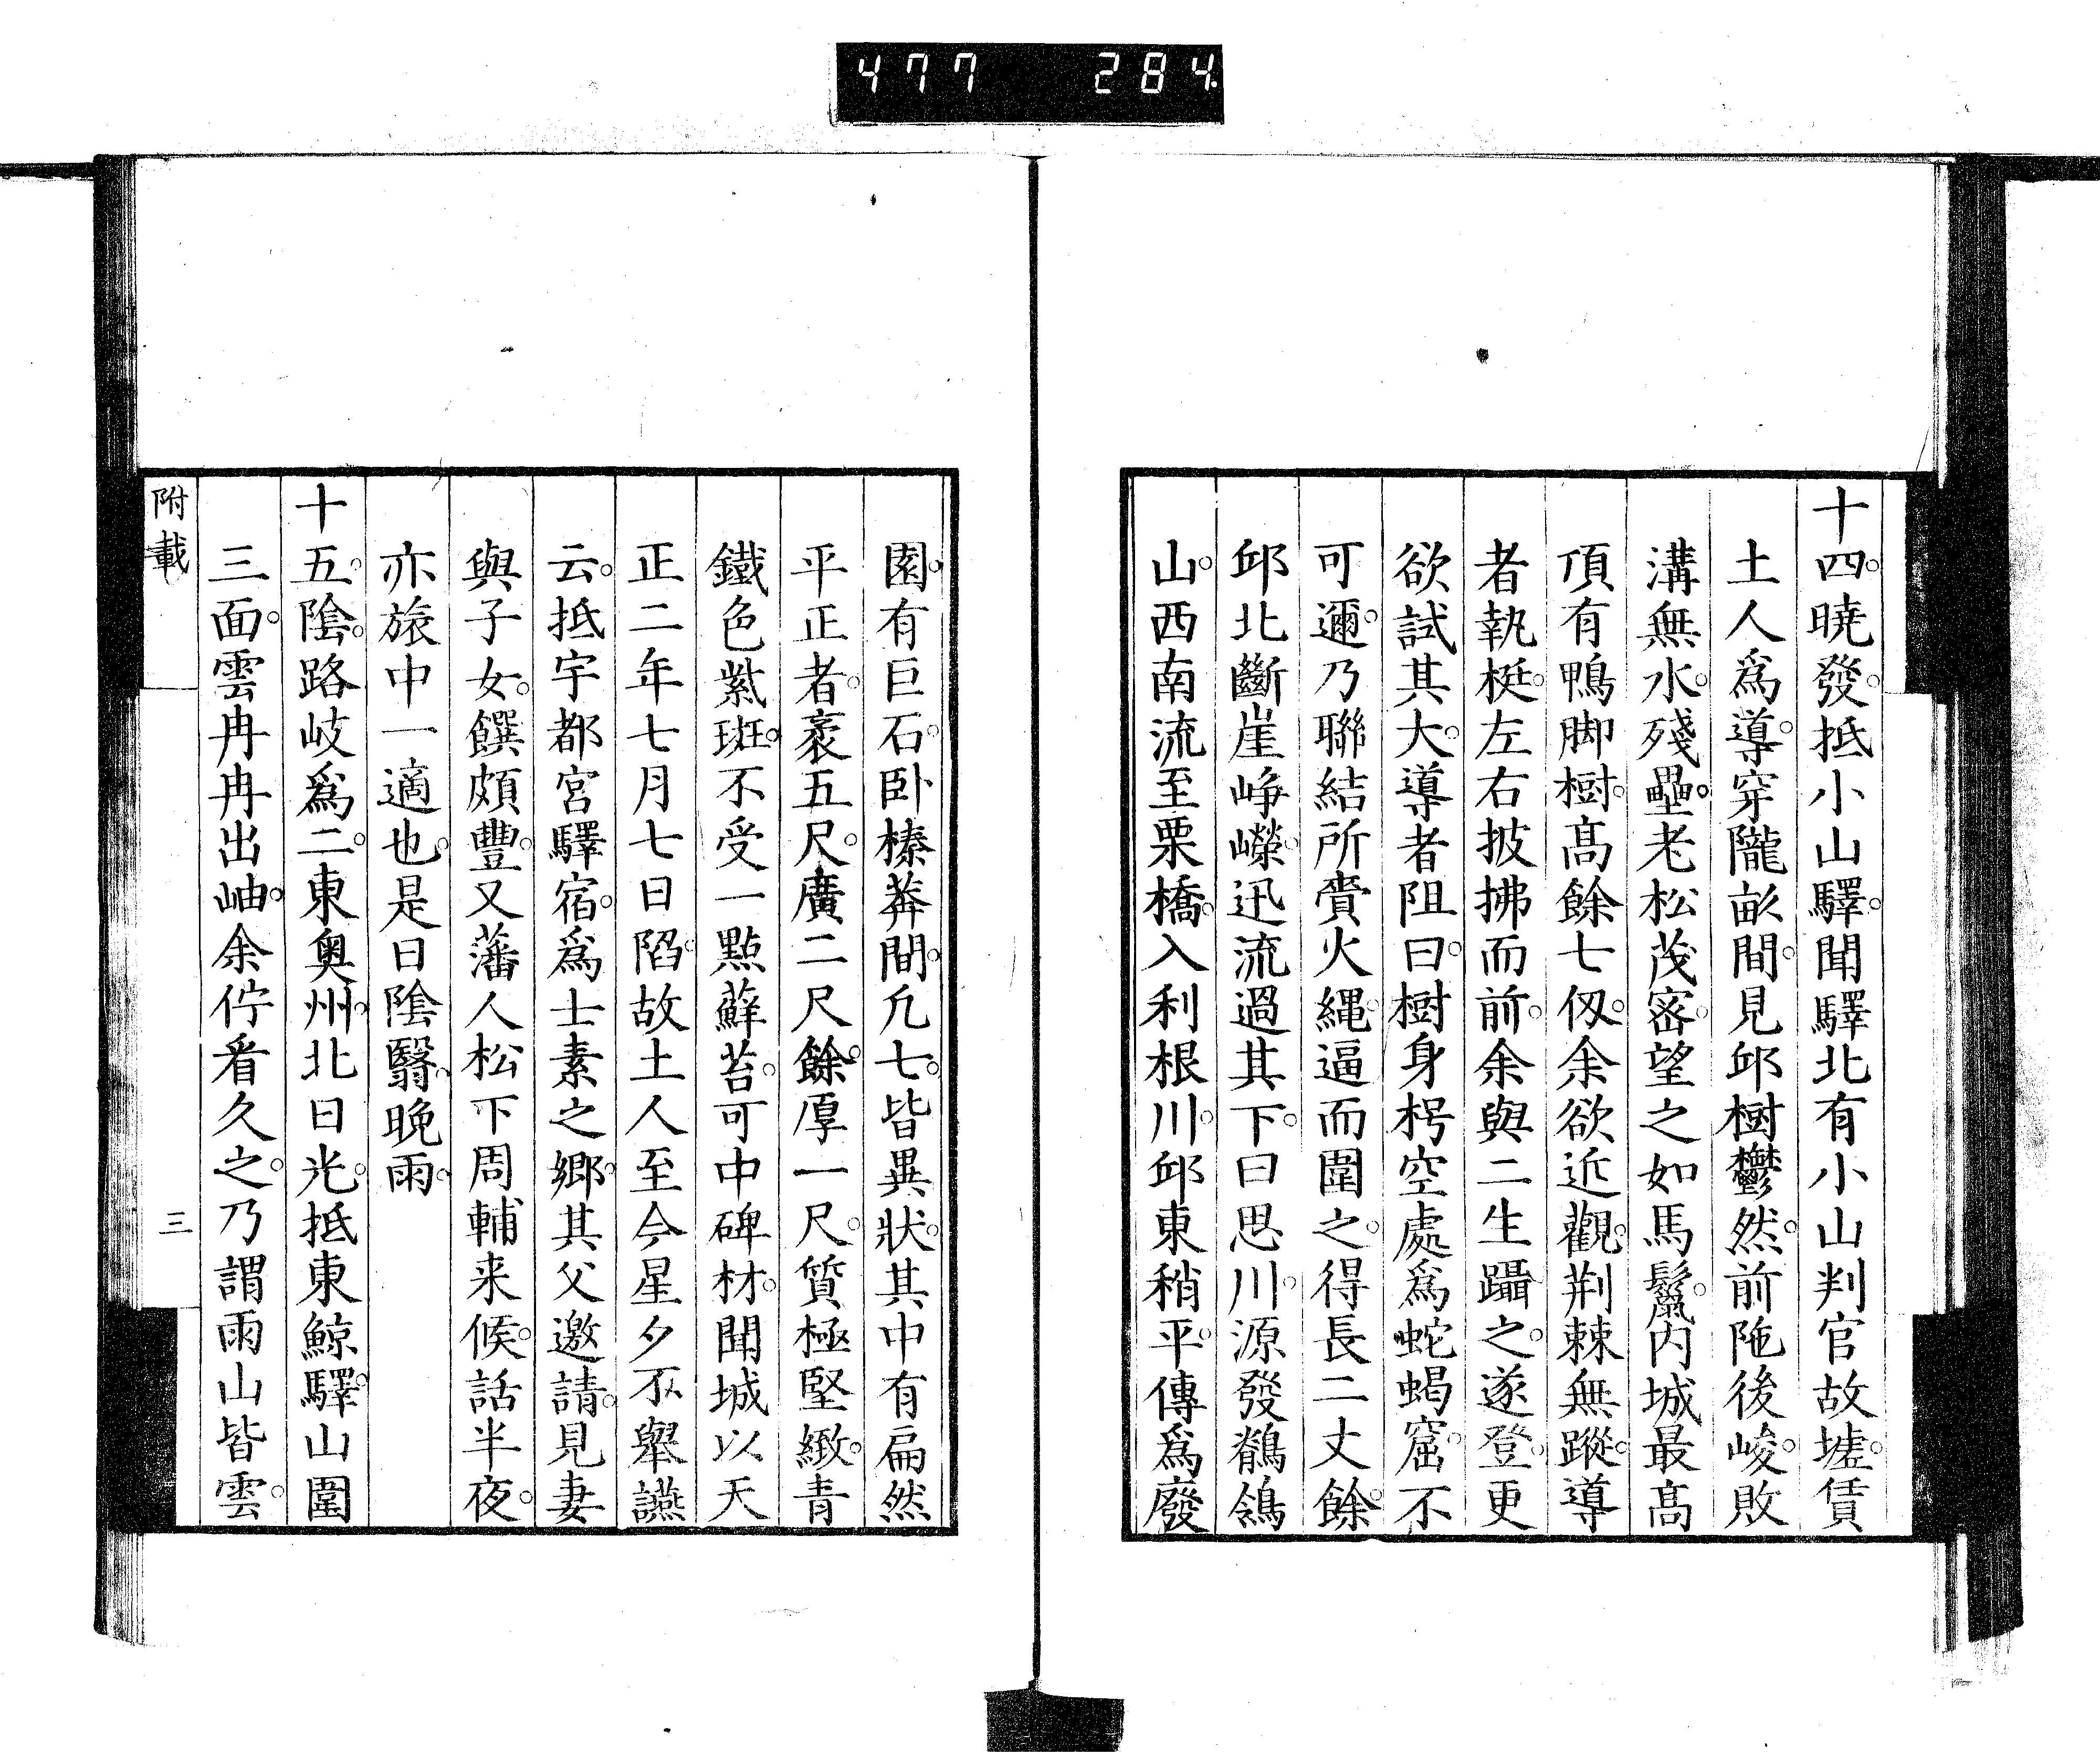 477 284
十四。曉發。抵小山驛。聞驛北有小山判官故墟。賃
土人爲導。穿隴畝間。見邱樹鬱然。前陁後峻。敗
溝無水。殘壘。老松茂密。望之如馬鬣。内城最高
頂有鴨脚樹。高餘七仭。余欲近觀。荆棘無蹤。導
者執梃。左右披拂而前。余與二生躡之。遂登。更
欲試其大。導者阻曰。樹身枵空處爲蛇蝎窟。不
可邇。乃聯結所賫火繩。逼而圍之。得長二丈餘。
邱北斷崖崢嶸。迅流過其下。曰思川。源發鶺鴒
山。西南流至栗橋。入利根川。邱東稍平。傳爲廢
園。有巨石。卧榛莽間。凢七。皆異狀。其中有扁然
平正者。袤五尺。廣二尺餘。厚一尺。質極堅緻。青
鐵色紫斑。不受一點蘚苔。可中碑材。聞城以天
正二年七月七日陷。故土人至今星夕不舉讌
云。抵宇都宮驛宿。爲士素之鄉。其父邀請。見妻
與子女。饌頗豐。又藩人松下周輔来候。話半夜。
亦旅中一適也。是日陰翳。晚雨。
十五。陰。路岐爲二。東奧州。北日光。抵東鯨驛。山圍
三面。雲冉冉出岫。余佇看久之。乃謂雨山皆雲。
附載
三